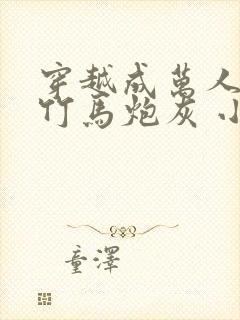 穿越成萬人
竹馬炮灰 小
童澤